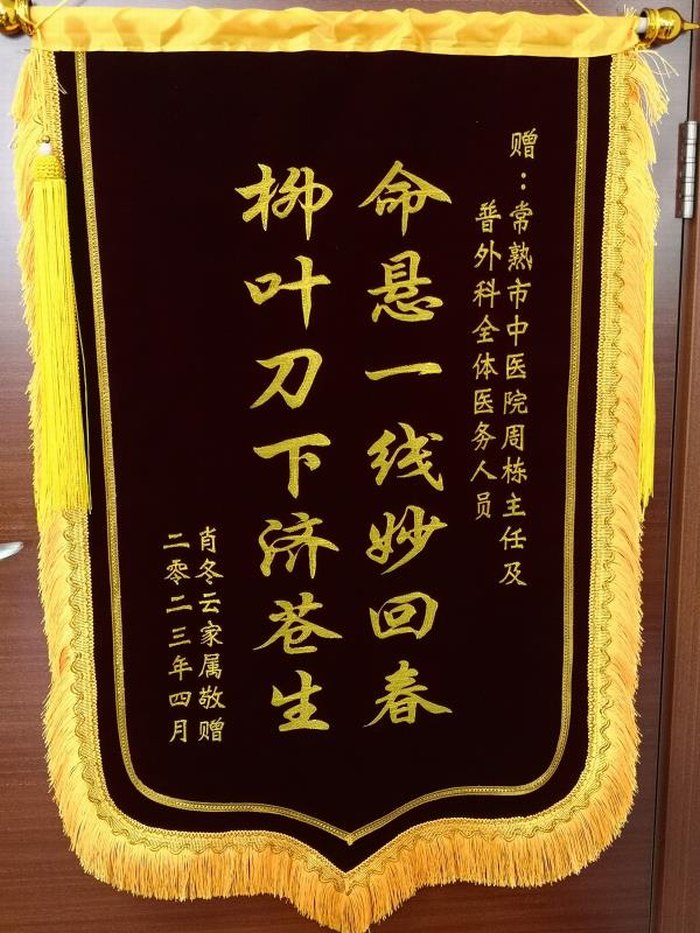 赠：常熟市中医院周栋主任及
普外科全体医务人员
命悬一线妙回春
柳叶刀下济苍生
肖冬云家属敬赠
二零二三年四月